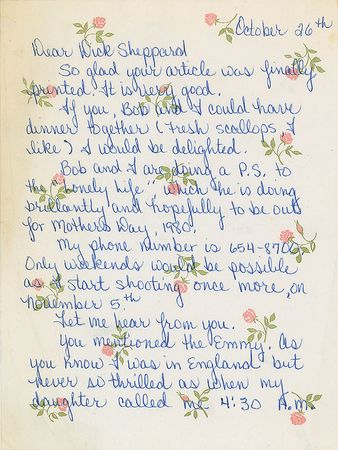 October 26th
Dear Dick Sheppard
So glad your article was finally
printed. It is very good.
If you, Bob and I could have
dinner together (Fresh scallops I
like) I would be delighted.
Bob and I are doing a P.S. to
the "Lonely Life" which he is doing
brilliantly and hopefully to be out
for Mothers Day, 1980.
My phone number is 654-870
Only weekends would be possible
as I start shooting once more, on
November 5th
Let me hear from you.
You mentioned the Emmy. As
you know I was in England but
never so thrilled as when my
daughter called me 4:30 A.M.